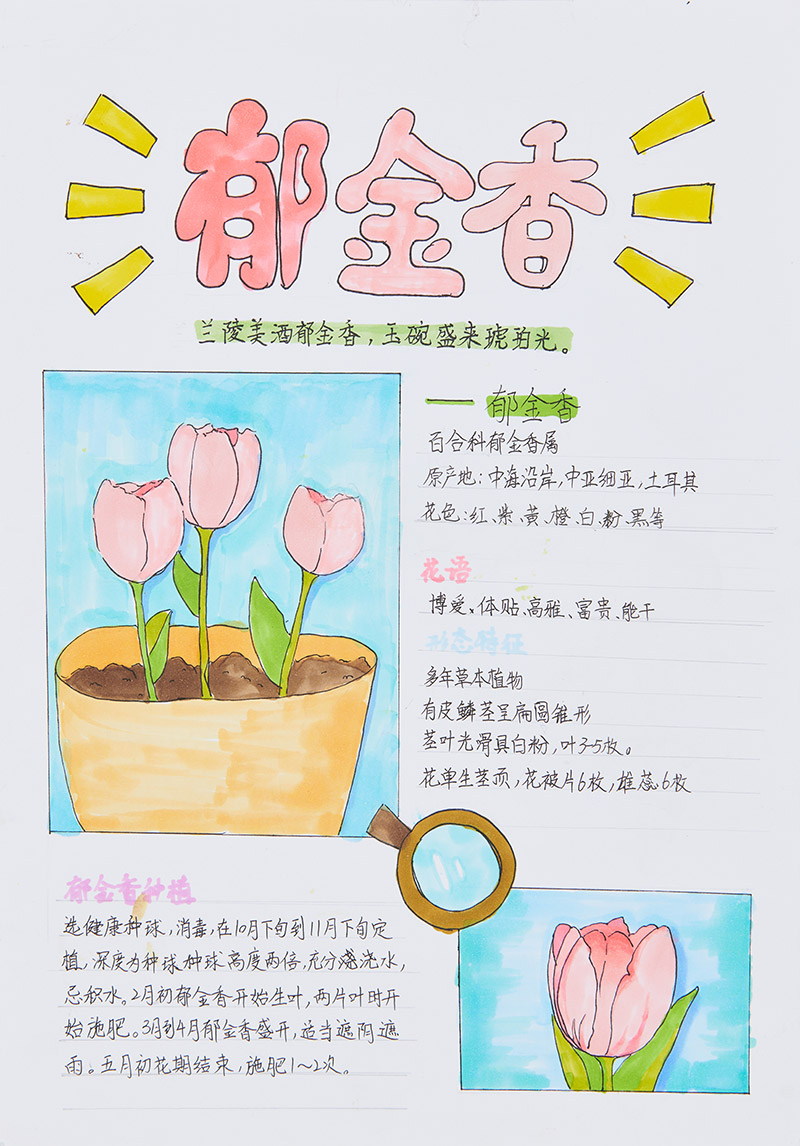 郁金香
兰陵美酒郁金香，玉碗盛来琥珀光。
— 郁金香
百合科郁金香属
原产地：中海沿岸，中亚细亚，土耳其
花色：红、紫、黄、橙、白、粉、黑等
花语
博爱、体贴、高雅、富贵、能干
形态特征
多年草本植物
有皮鳞茎呈扁圆锥形
茎叶光滑具白粉，叶3-5枚。
花单生茎顶，花被片6枚，雄蕊6枚
郁金香种植
选健康种球，消毒，在10月下旬到11月下旬定
植，深度为种球种球高度两倍，充分浇浇水，
忌积水。2月初郁金香开始生叶，两片叶时开
始施肥。3月到4月郁金香盛开，适当遮阴遮
雨。五月初花期结束，施肥1~2次。